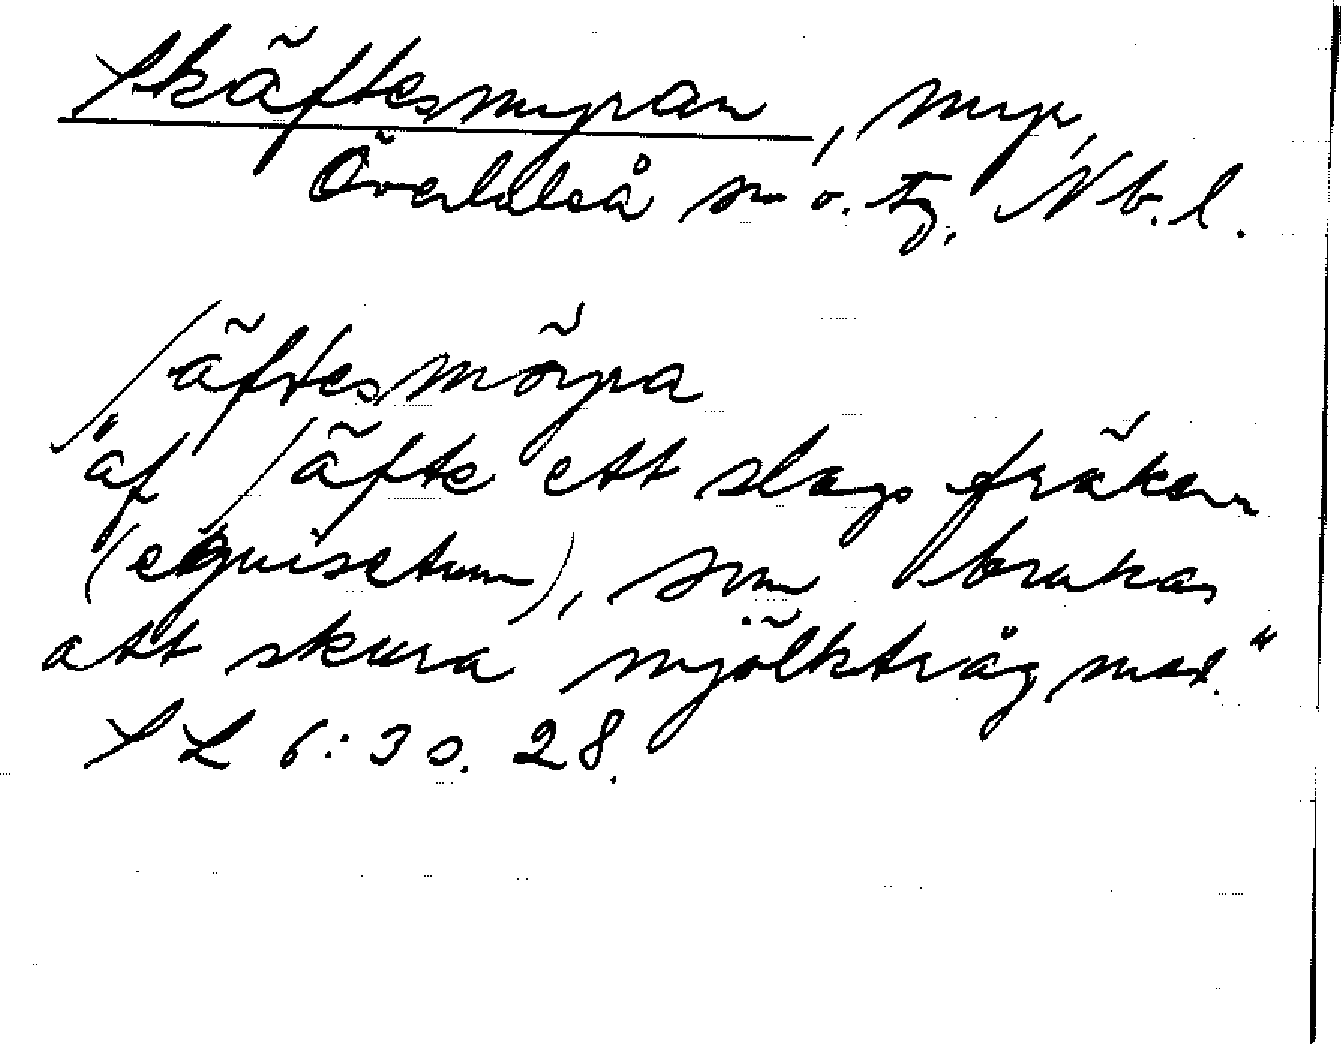 Skäftesmyran, myr,
Överluleå sn o. tg, Nb. l.
ʃäftesmöyra
"af ʃäfte ett slags fräken
(equisetum), som brukas
att skura mjölktråg med."
SL 6: 3 s. 28.